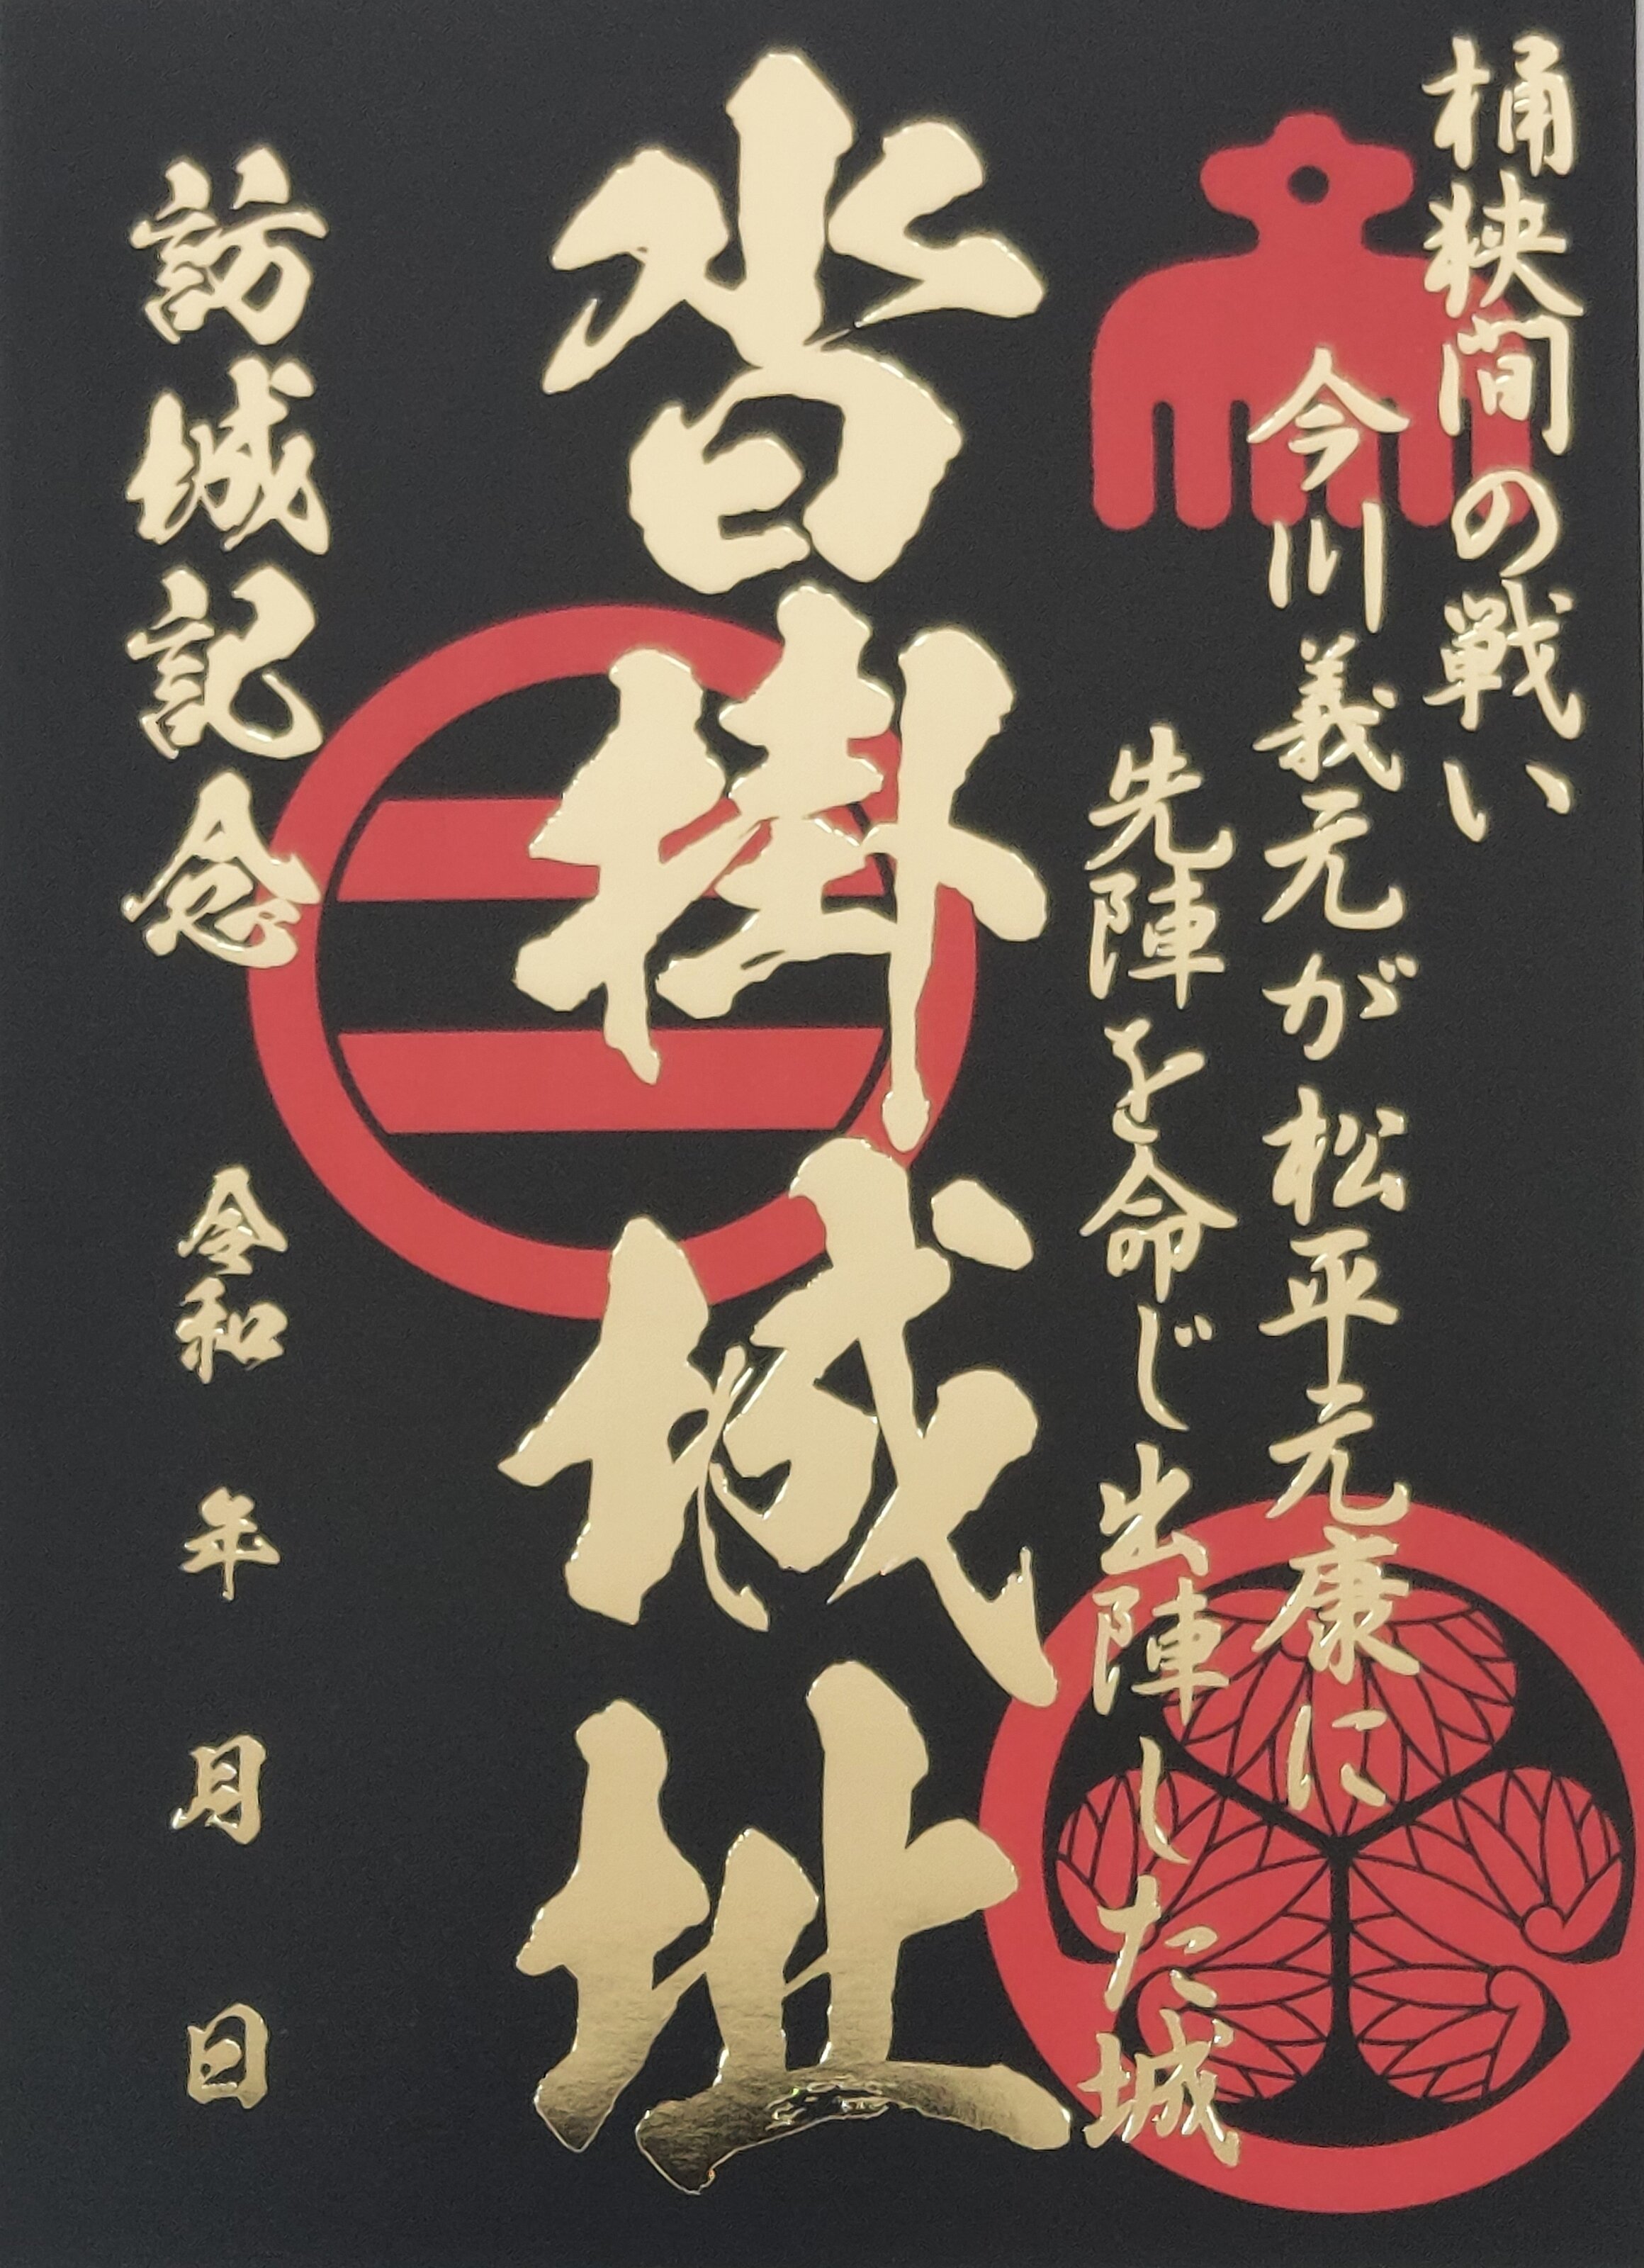 桶狭間の戦い
今川義元が松平元康に
先陣を命じ出陣した城
沓掛城址
訪城記念
令和 年 月 日